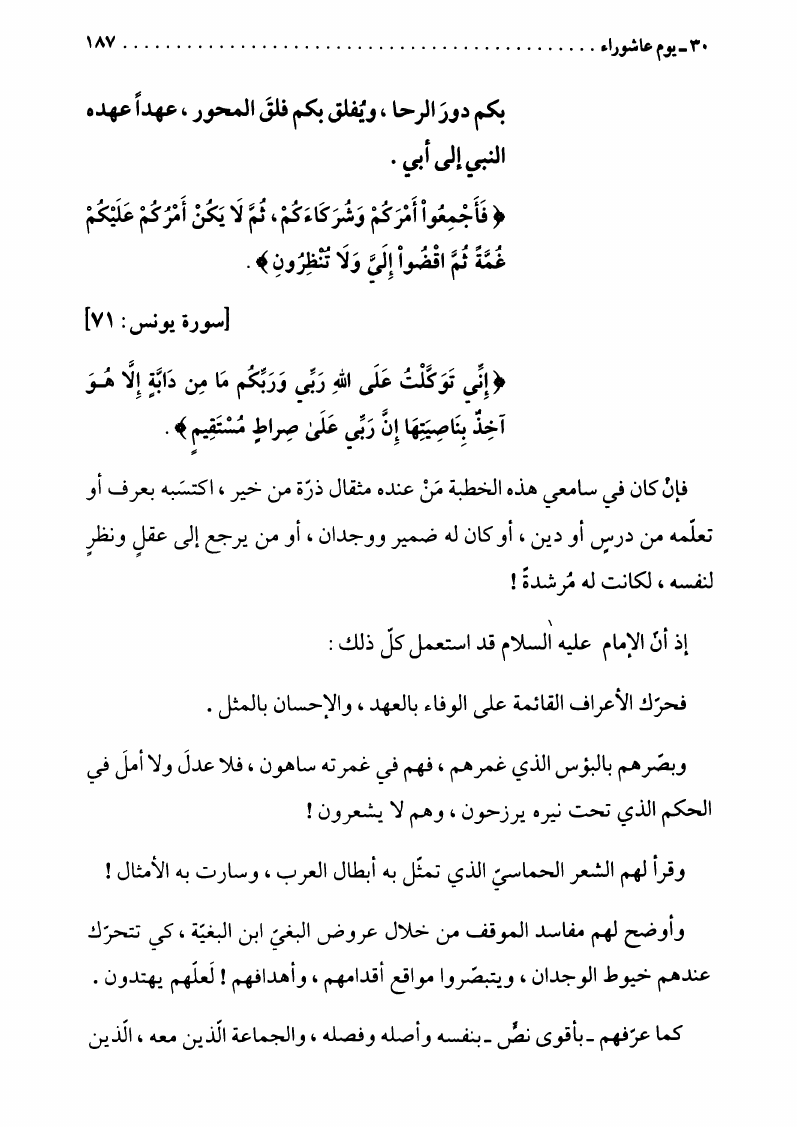 ٣٠ ـ يوم عاشوراء ............................................. ١٨٧
بكم دورَ الرحا ، ويُفلق بكم فلقَ المحور ، عهداً عهده
النبي إلى أبي .
﴿ فَأَجْمِعُواْ أَمْرَكُمْ وَشُرَكَاءَكُمْ ، ثُمَّ لَا يَكُنْ أَمْرُكُمْ عَلَيْكُمْ
غُمَّةً ثُمَّ اقْضُواْ إِلَيَّ وَلَا تُنْظِرُونِ ﴾ .
[سورة يونس : ٧١]
﴿ إِنِّي تَوَكَّلْتُ عَلَى اللهِ رَبِّي وَرَبِّكُم مَا مِن دَابَّةٍ إِلَّا هُوَ
آخِذٌ بِنَاصِيَتِهَا إِنَّ رَبِّي عَلَىٰ صِراطٍ مُسْتَقِيمٍ ﴾ .
فإنْ كان في سامعي هذه الخطبة مَنْ عنده مثقال ذرّة من خير ، اكتسَبه بعرف أو
تعلّمه من درسٍ أو دين ، أو كان له ضمير ووجدان ، أو من يرجع إلى عقلٍ ونظرٍ
لنفسه ، لكانت له مُرشدةً !
إذ أنّ الإمام عليه السلام قد استعمل كلّ ذلك :
فحرّك الأعراف القائمة على الوفاء بالعهد ، والإحسان بالمثل .
وبصّرهم بالبؤس الذي غمرهم ، فهم في غمرته ساهون ، فلا عدلَ ولا أملَ في
الحكم الذي تحت نيره يرزحون ، وهم لا يشعرون !
وقرأ لهم الشعر الحماسيّ الذي تمثّل به أبطال العرب ، وسارت به الأمثال !
وأوضح لهم مفاسد الموقف من خلال عروض البغيّ ابن البغيّة ، كي تتحرّك
عندهم خيوط الوجدان ، ويتبصّروا مواقع أقدامهم ، وأهدافهم ! لَعلّهم يهتدون .
كما عرّفهم ـ بأقوى نصٍّ ـ بنفسه وأصله وفصله ، والجماعة الّذين معه ، الّذين